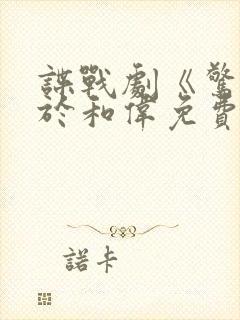 諜戰劇《驚
於和偉免費
諾卡